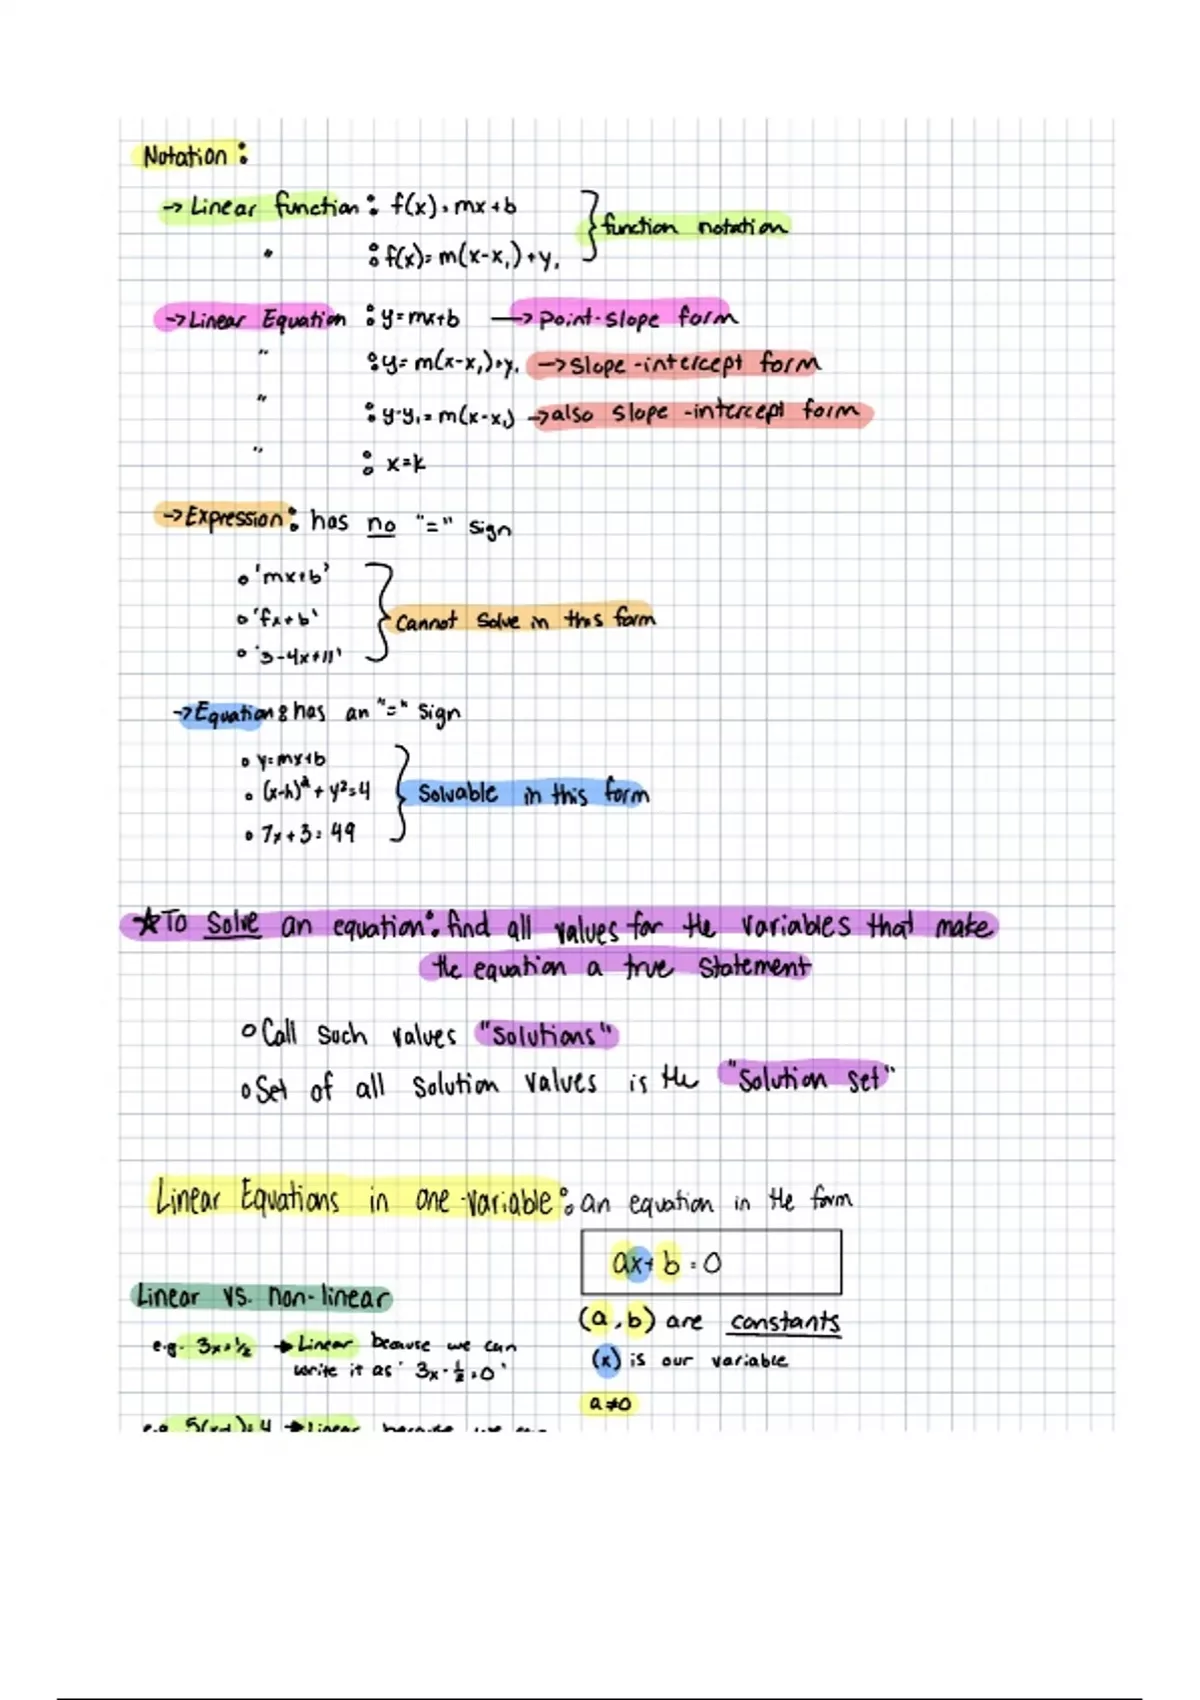 Notation:
→ Linear function: f(x) = mx+b
" : f(x) = m(x-x₁)+y₁
function notation
→ Linear Equation : y=mx+b → point-slope form
" : y= m(x-x₁)+y₁ → slope-intercept form
" : y-y₁ = m(x-x₁) → also slope-intercept form
" : x=k
→ Expression: has no "=" sign
o 'mx+b'
o 'fx+b'
o '3-4x+11'
Cannot solve in this form
→ Equation: has an "=" sign
• y=mx+b
• (x-h)² + y²=4
• 7x+3=49
Solvable in this form
★To solve an equation: find all values for the variables that make
the equation a true statement
o Call such values "solutions"
o Set of all solution values is the "solution set"
Linear Equations in one-variable: an equation in the form
ax+b=0
Linear vs. non-linear
(a,b) are constants
e.g. 3x=1/2 → Linear because we can
write it as '3x-1/2=0'
(x) is our variable
a≠0
e.g. → Linear because we can